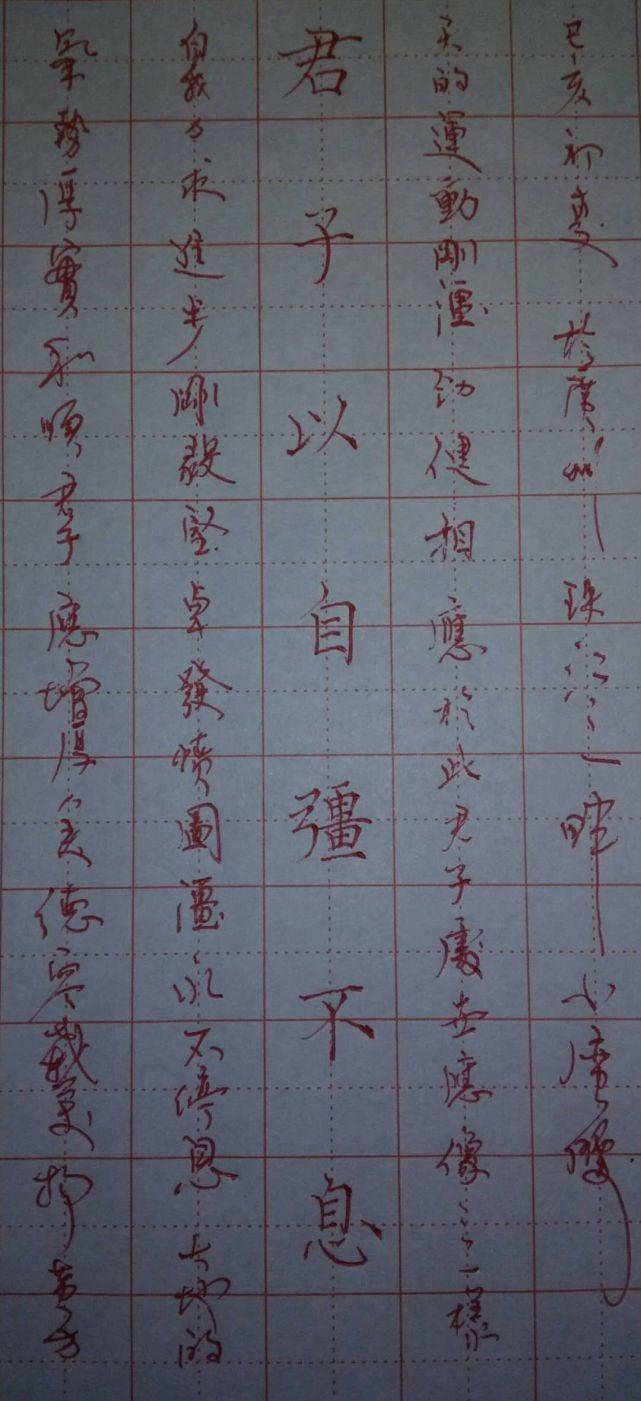 己亥初夏 於廣州 珠江之畔 小唐
天的運動剛彊勁健相應於此君子處世應像一樣
君子以自彊不息
自我力求進步剛毅堅卓發憤圖彊永不停息 大地的
氣勢厚實和順君子應增厚美德容載萬物